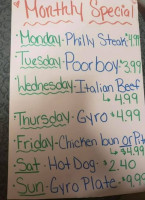 Monthly Special
• Monday - Philly Steak 4.99
Tuesday - Poorboy $3.99
Wednesday - Italian Beef
↳ 4.99
Thursday - Gyro $4.99
Friday - Chicken bun or Pita
↳ $4.99
• Sat - Hot Dog - $2.40
Sun - Gyro Plate - $9.99